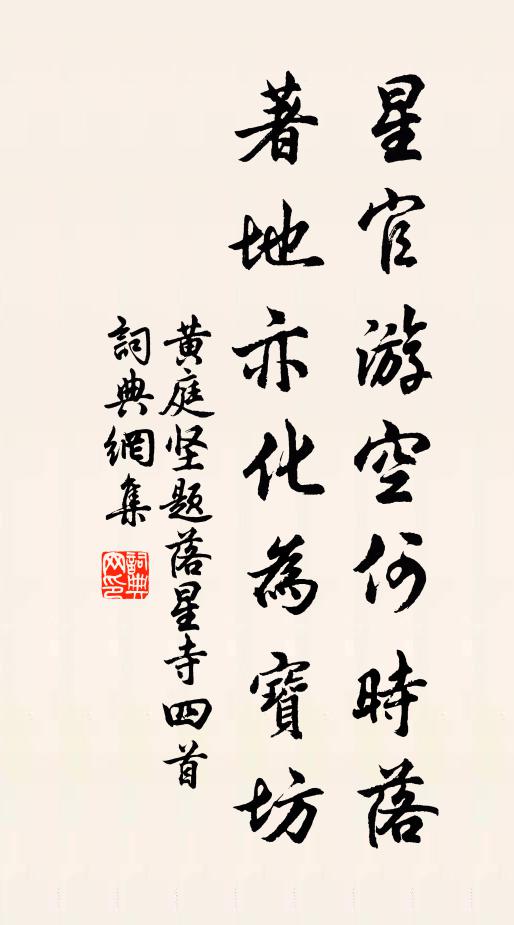 星官游空何時落
著地亦化為寶坊
黃庭坚题落星寺四首
詞典網集
詞典
网印